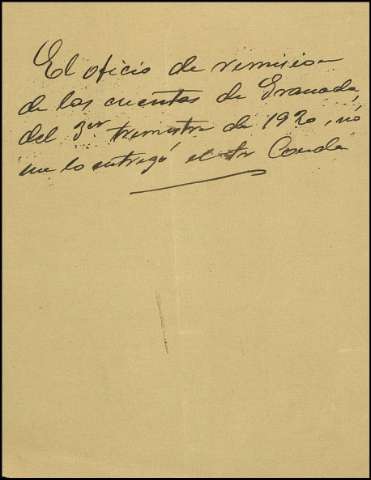 El oficio de remision
de las cuentas de Granada,
del 3er trimestre de 1920, no
me lo entregó el Sr Conde